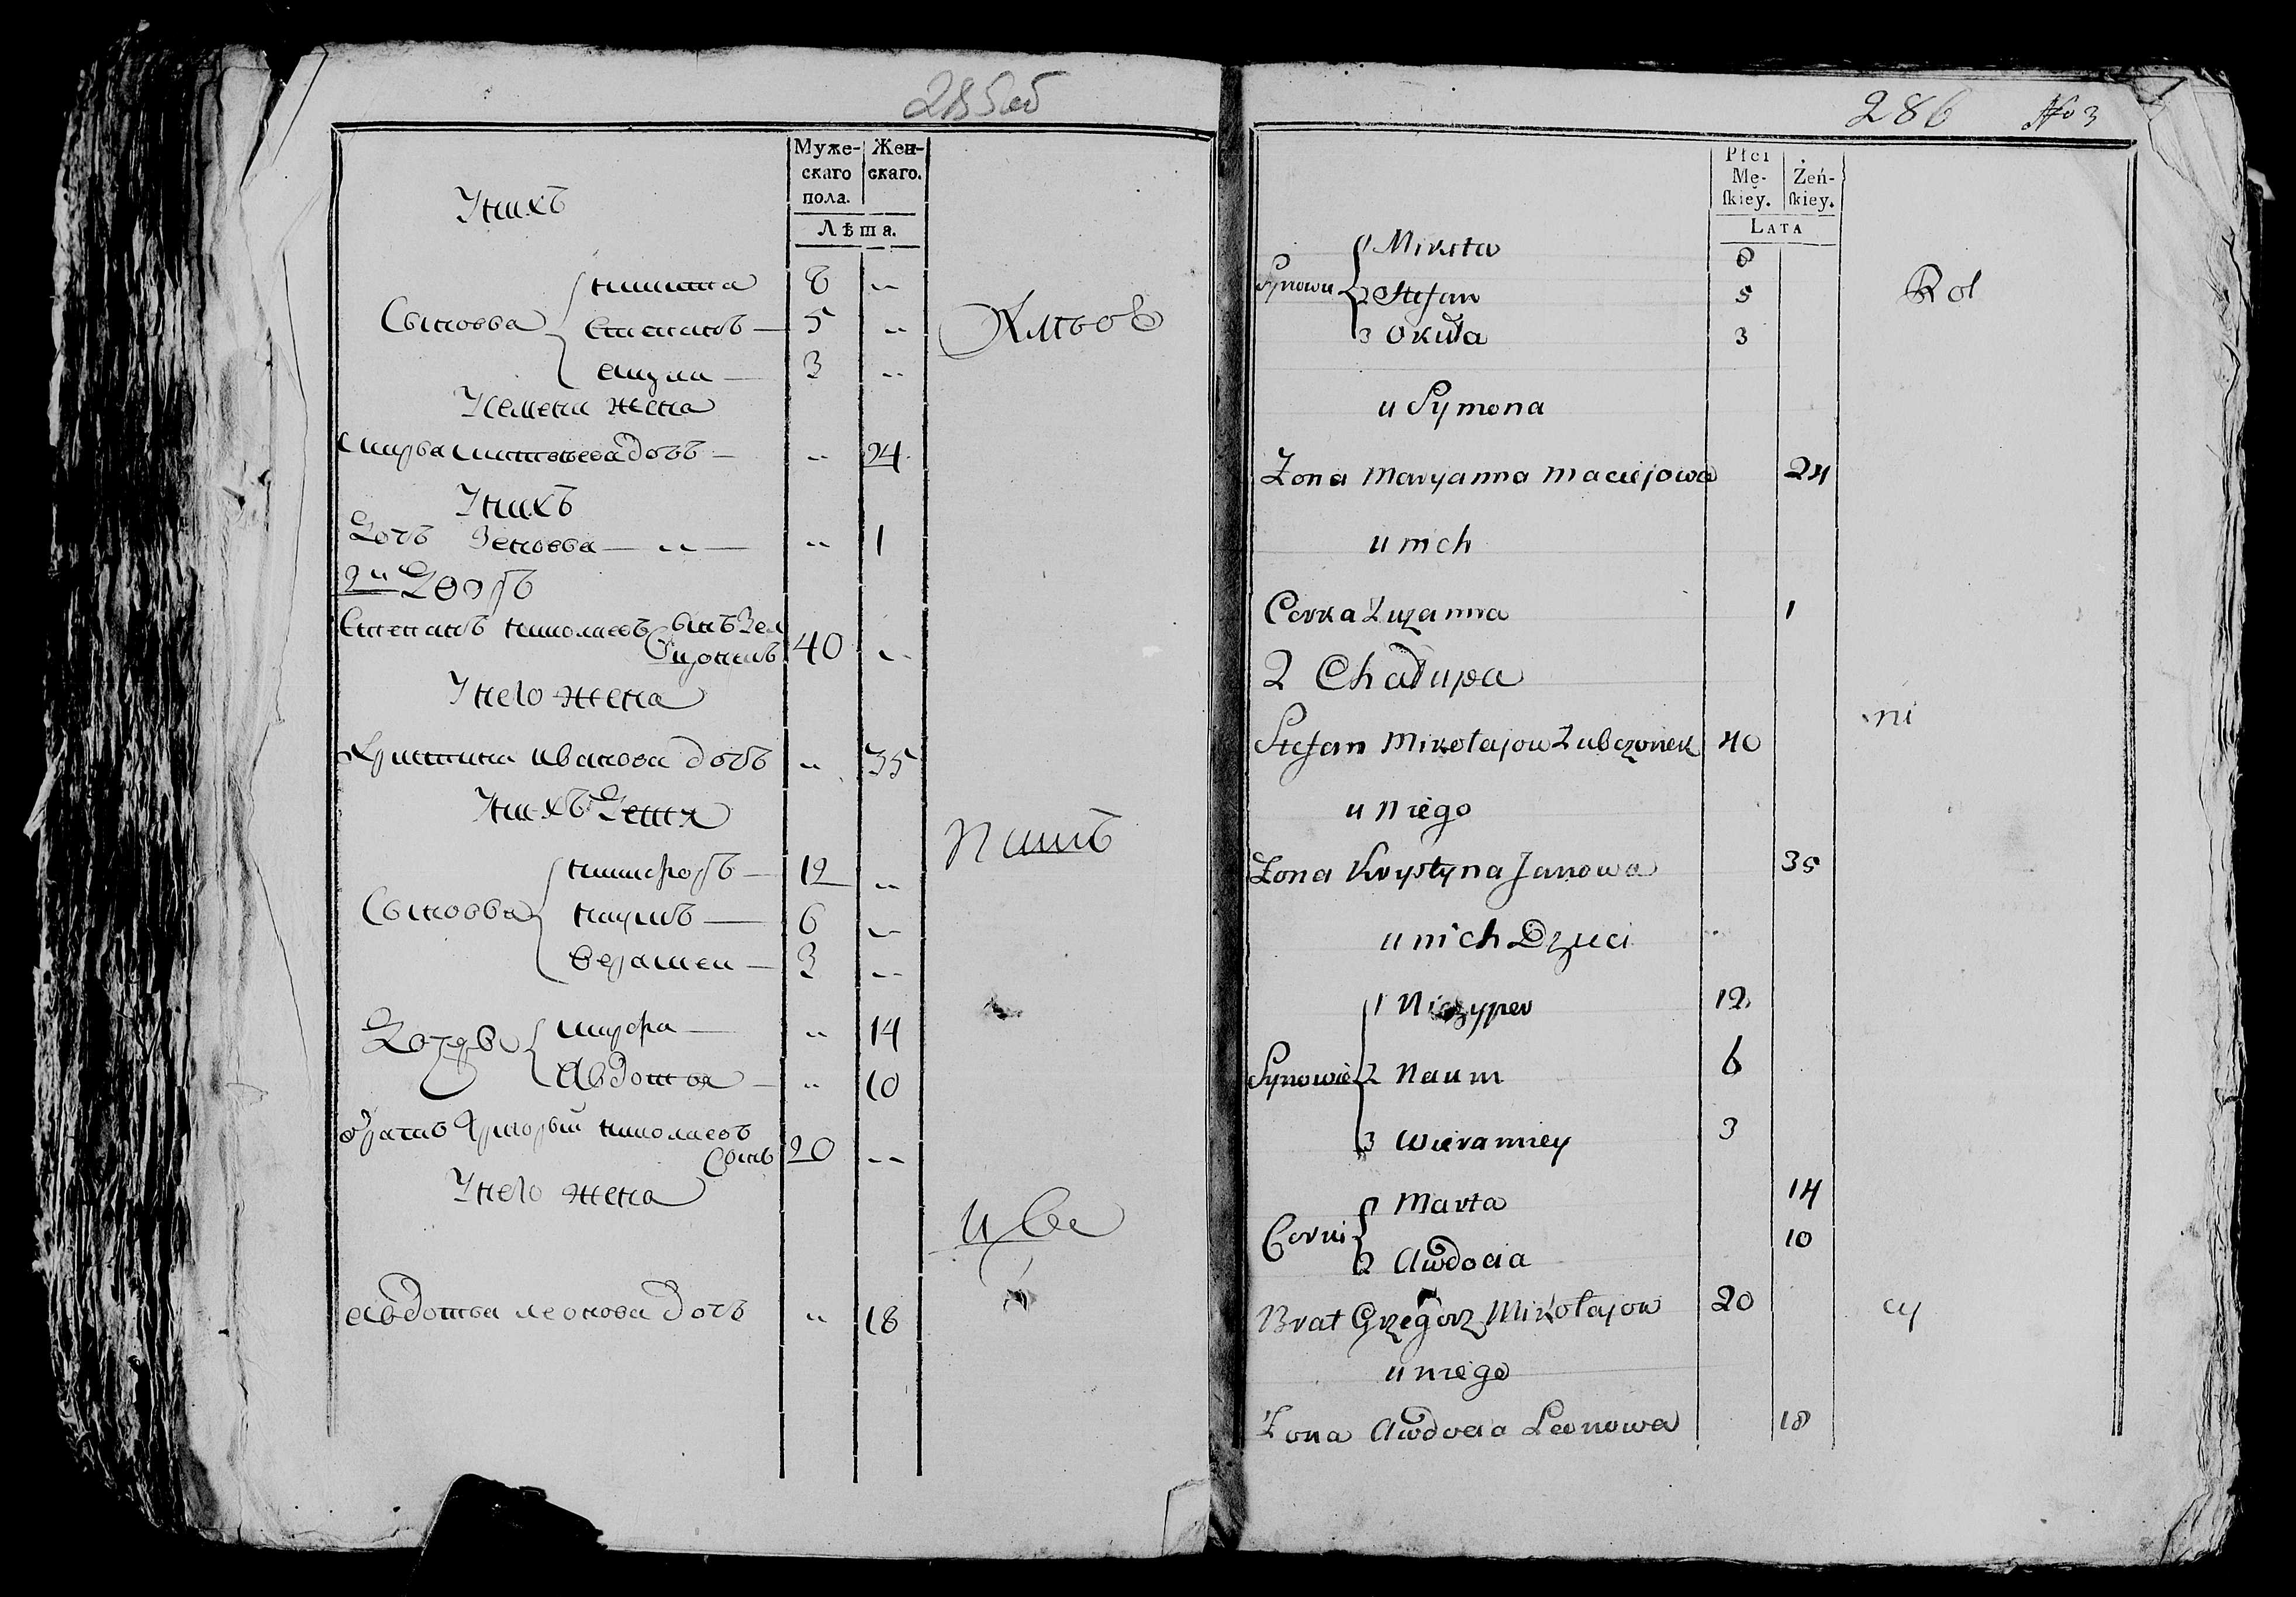 285об
Муже-
скаго
пола.
Жен-
скаго.
Лѣта.
Унихъ
Сыновья
никита 8 --
Степанъ — 5 --
3 --
жена
24
Унихъ
Дочь — -- — -- 1
2й Дворъ
Степанъ николаевъ сынъ 40 --
Унего жена
Христина иванова дочь -- 35
Унихъ Дети
Сыновья
никифоръ — 12 --
наумъ — 6 --
3 --
Дочери
марфа — -- 14
Авдотья — -- 10
братъ Григорый николаевъ
сынъ 20 --
Унего жена
авдотья леонова дочь -- 18
286 No 3
Płci
Mę-
skiey.
Żeń-
skiey.
Lata
Synowie
1 Mikita 8
2 Stefan 5
3 Okuła 3
Rol
u Symona
Żona Maryanna Maciejowa 24
u nich
Corka Zuzanna 1
2 Chałupa
ni
Stefan Mikołajow Zubczonek 40
u Niego
Żona Krystyna Janowa 35
u nich Dzieci
Synowie
1 Niczyper 12
2 Naum 6
3 Wieramiey 3
Corki
1 Marta 14
2 Awdocia 10
Brat Grzegorz Mikołajow 20
cy
u niego
Żona Awdocia Leonowa 18